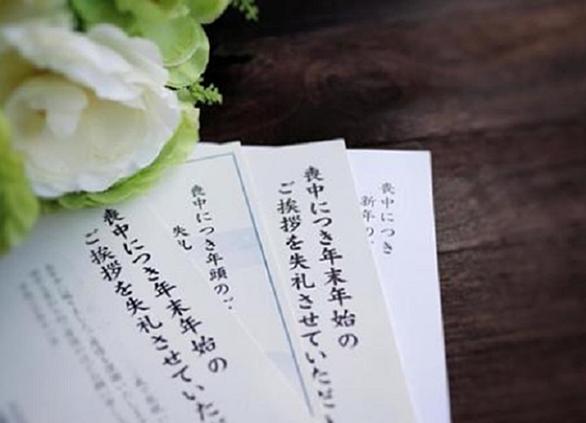 喪中につき
新年の
喪中につき年末年始の
ご挨拶を失礼させていただき
喪中につき年頭のご
失礼
喪中につき年末年始の
ご挨拶を失礼させていた